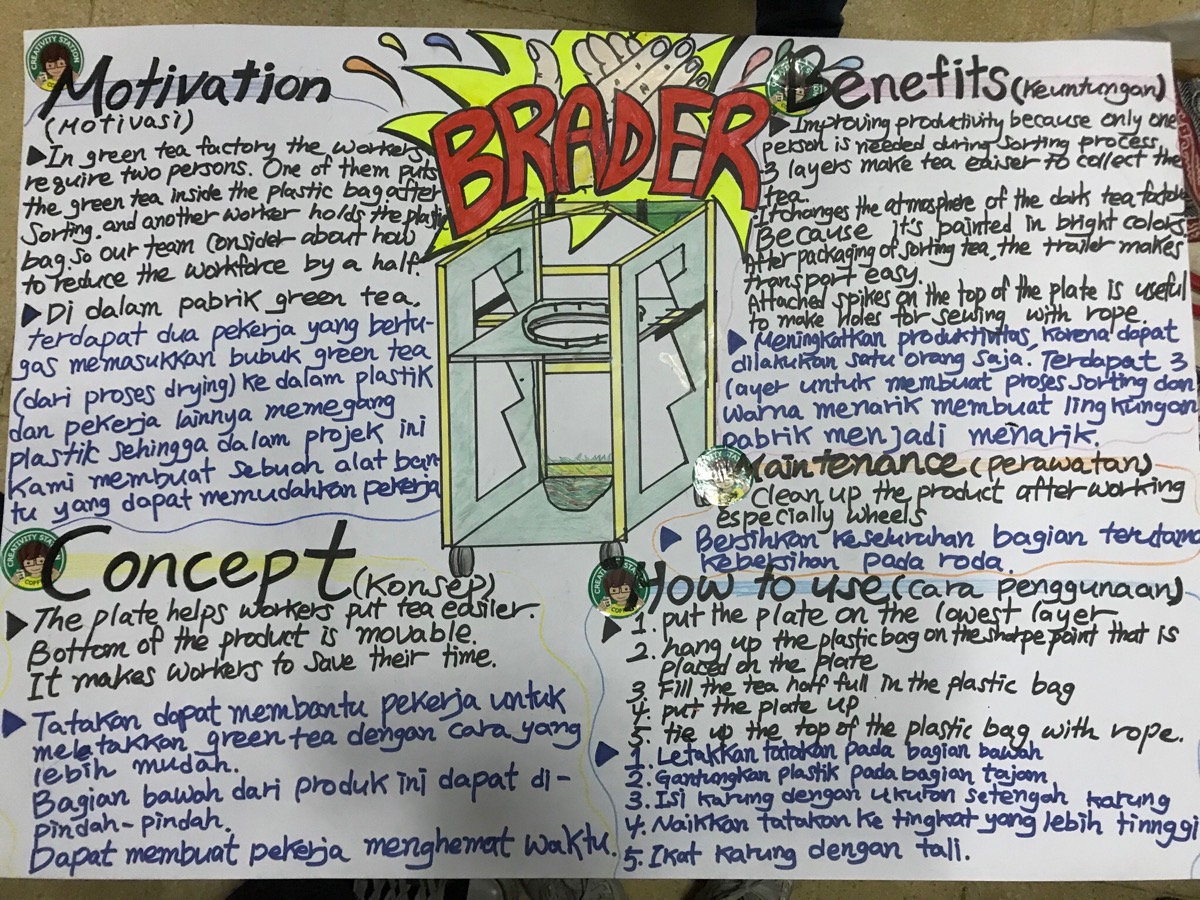 CREATIVITY STATION
Motivation
(Motivasi)
In green tea factory the workers
require two persons. One of them puts
the green tea inside the plastic bag after
Sorting. and another worker holds the plastic
bag so our team consider about how
to reduce the workforce by a half.
Di dalam pabrik green tea,
terdapat dua pekerja yang bertu-
gas memasukkan bubuk green tea
(dari proses drying) ke dalam plastik
dan pekerja lainnya memegang
plastik sehingga dalam projek ini
kami membuat sebuah alat ban-
tu yang dapat memudahkan pekerja
CREATIVITY STATION
COFFEE
Concept (Konsep)
The plate helps workers put tea easiler.
Bottom of the product is movable.
It makes workers to save their time.
Tatakan dapat membantu pekerja untuk
meletakkan green tea dengan cara yang
lebih mudah.
Bagian bawah dari produk ini dapat di-
pindah-pindah.
Dapat membuat pekerja menghemat waktu.
BRADER
Benefits (Keuntungan)
Improving productivity because only one
person is needed during sorting process,
3 layers make tea eaiser to collect the
tea.
It changes the atmosphere of the dark tea factory
Because it's painted in bright colors
After packaging of sorting tea, the trailer makes
transport easy.
Attached spikes on the top of the plate is useful
to make holes for sewing with rope.
Meningkatkan produktivitas, karena dapat
dilakukan satu orang saja. Terdapat 3
layer untuk membuat proses sorting dan
warna menarik membuat lingkungan
pabrik menjadi menarik.
Maintenance (perawatan)
Clean up the product after working
especially wheels
Bersihkan keseluruhan bagian terutama
kebersihan pada roda.
CREATIVITY STATION
COFFEE
How to use (cara penggunaan)
1. put the plate on the lowest layer
2. hang up the plastic bag on the sharpe point that is
placed on the plate
3. Fill the tea half full in the plastic bag
4. put the plate up
5. tie up the top of the plastic bag with rope.
1. Letakkan tatakan pada bagian bawah
2. Gantungkan plastik pada bagian tajam
3. Isi karung dengan ukuran setengah karung
4. Naikkan tatakan ke tingkat yang lebih tinnggi
5. Ikat karung dengan tali.